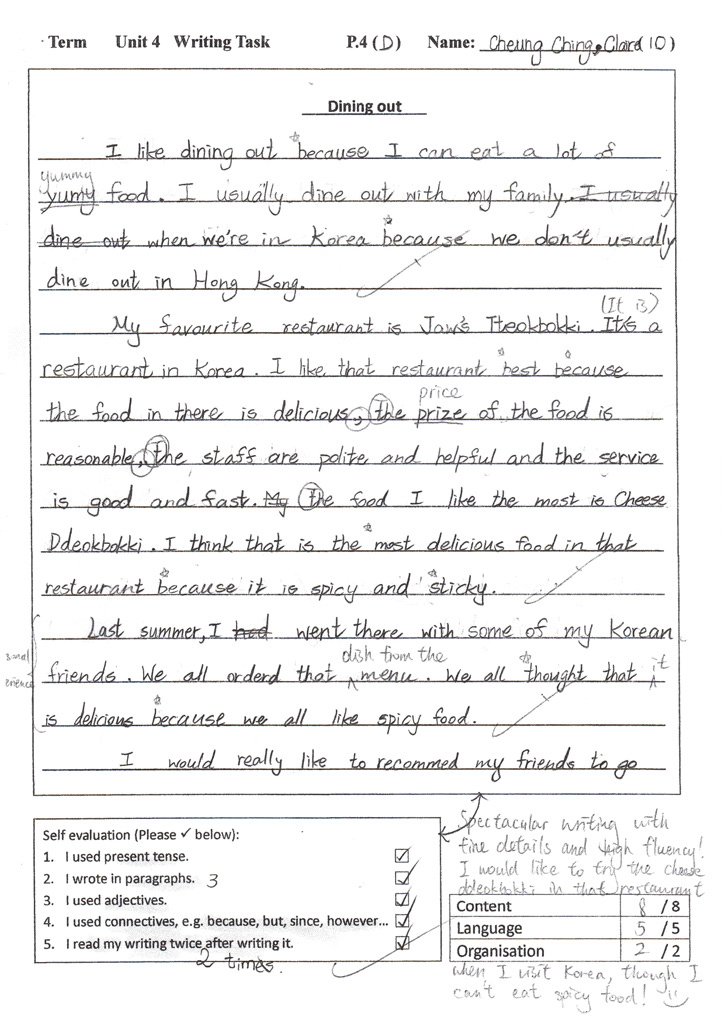 · Term Unit 4 Writing Task P.4 (D) Name: Cheung Ching, Clara (10)
Dining out
I like dining out because I can eat a lot of
yummy
yumy food. I usually dine out with my family. I usually
dine out when we're in Korea because we don't usually
dine out in Hong Kong.
(It is)
My favourite restaurant is Jaws Tteokbokki. It's a
restaurant in Korea. I like that restaurant best because
price
the food in there is delicious, the prize of the food is
reasonable, the staff are polite and helpful and the service
is good and fast. My the food I like the most is Cheese
Ddeokbokki. I think that is the most delicious food in that
restaurant because it is spicy and sticky.
Last summer, I had went there with some of my Korean
dish from the it
friends. We all orderd that menu. We all thought that
is delicious because we all like spicy food.
I would really like to recommed my friends to go
Self evaluation (Please ✓ below):
1. I used present tense. ☑
2. I wrote in paragraphs. 3 ☑
3. I used adjectives. ☑
4. I used connectives, e.g. because, but, since, however... ☑
5. I read my writing twice after writing it. ☑
2 times.
Spectacular writing with
fine details and high fluency!
I would like to try the cheese
ddeokbokki in that restaurant
Content 8 / 8
Language 5 / 5
Organisation 2 / 2
when I visit Korea, though I
can't eat spicy food!